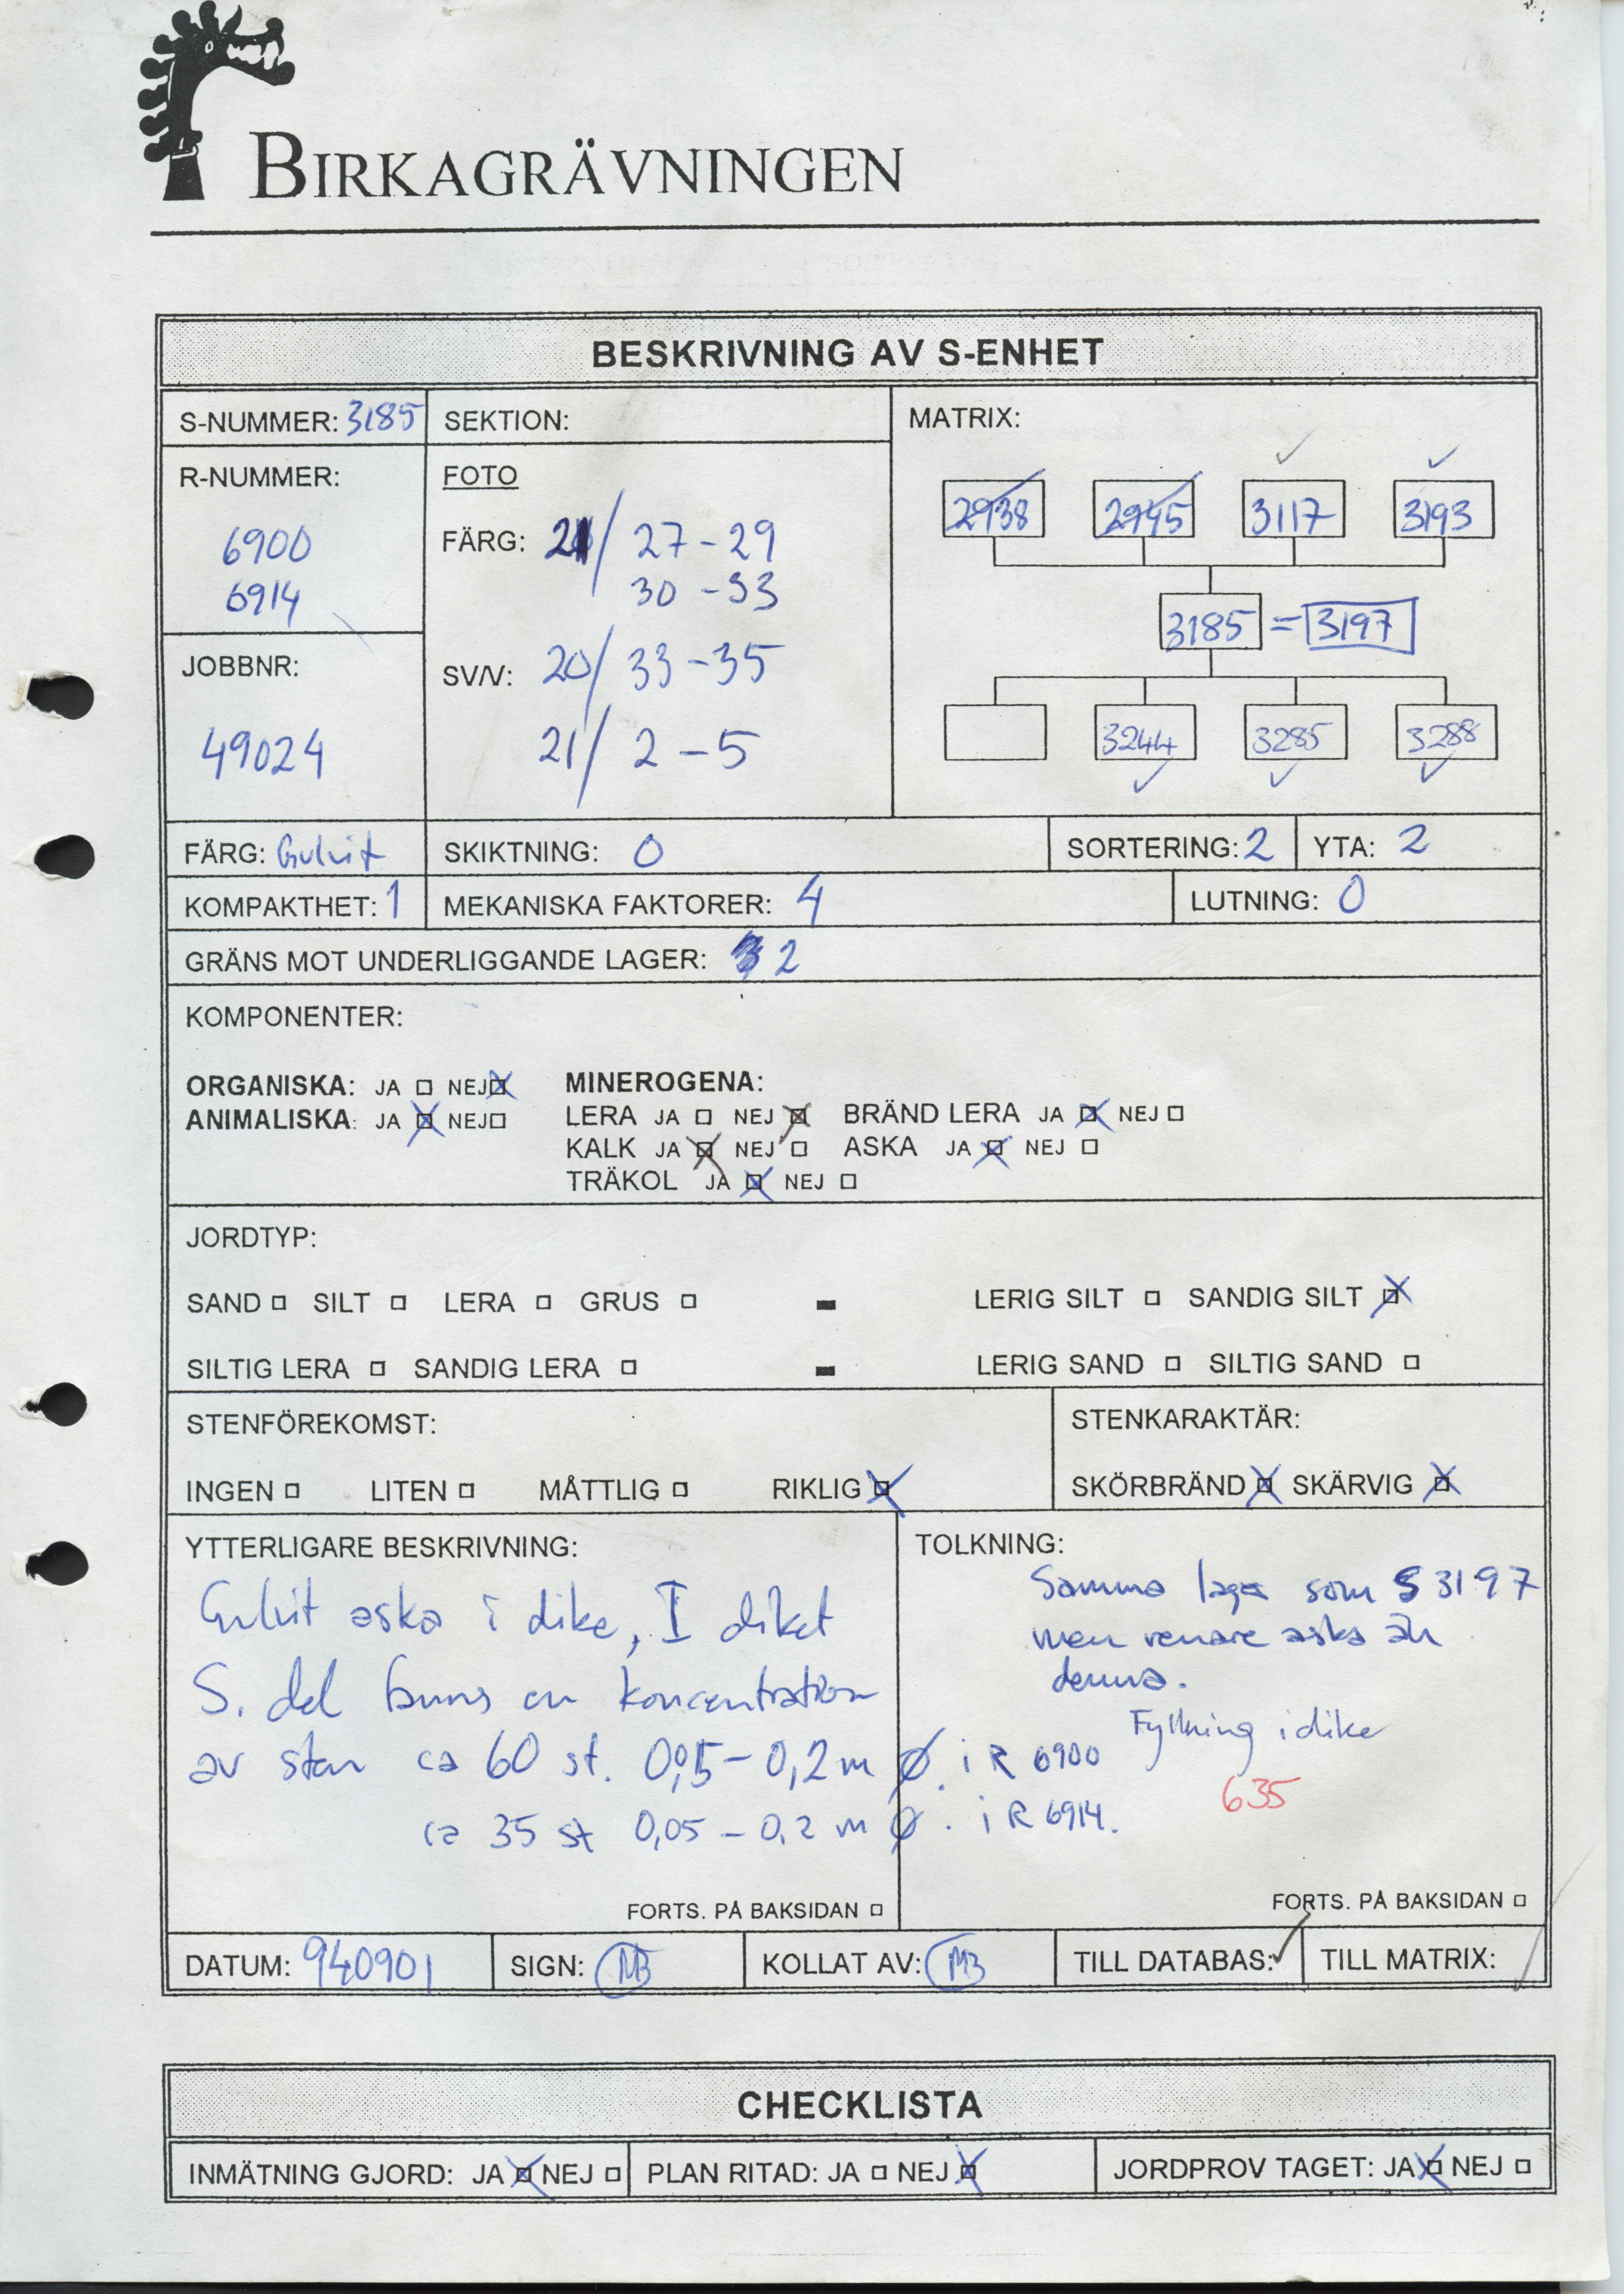 BIRKAGRÄVNINGEN
BESKRIVNING AV S-ENHET
S-NUMMER: 3185
SEKTION:
MATRIX:
R-NUMMER:
6900
6914
FOTO
FÄRG: 21/ 27-29
30-33
SV/V: 20/ 33-35
21/ 2-5
JOBBNR:
49024
2938 2945 3117 3193
3185 = 3197
3244 3285 3288
FÄRG: Gulvit
SKIKTNING: 0
SORTERING: 2
YTA: 2
KOMPAKTHET: 1
MEKANISKA FAKTORER: 4
LUTNING: 0
GRÄNS MOT UNDERLIGGANDE LAGER: 2
KOMPONENTER:
ORGANISKA: JA NEJ MINEROGENA:
ANIMALISKA: JA NEJ LERA JA NEJ BRÄND LERA JA NEJ
KALK JA NEJ ASKA JA NEJ
TRÄKOL JA NEJ
JORDTYP:
SAND SILT LERA GRUS - LERIG SILT SANDIG SILT
SILTIG LERA SANDIG LERA - LERIG SAND SILTIG SAND
STENFÖREKOMST:
INGEN LITEN MÅTTLIG RIKLIG
STENKARAKTÄR:
SKÖRBRÄND SKÄRVIG
YTTERLIGARE BESKRIVNING:
Gulvit aska i dike, I diket
S. del fanns en koncentration
av sten ca 60 st. 0,05-0,2 m Ø. i R 6900
ca 35 st 0,05-0,2 m Ø. i R 6914.
FORTS. PÅ BAKSIDAN
TOLKNING:
Samma lager som S 3197
men renare aska än
denna.
Fyllning i dike
635
FORTS. PÅ BAKSIDAN
DATUM: 940901
SIGN: MB
KOLLAT AV: MB
TILL DATABAS: ✓
TILL MATRIX:
CHECKLISTA
INMÄTNING GJORD: JA NEJ
PLAN RITAD: JA NEJ
JORDPROV TAGET: JA NEJ